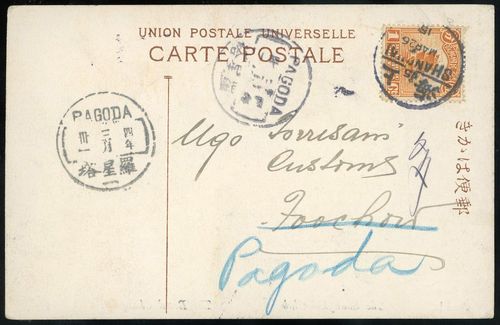 UNION POSTALE UNIVERSELLE
CARTE POSTALE
PAGODA
SHANGHAI
PAGODA
四年
三月
卅一
羅星塔
Ugo Torrisani
Customs
Foochow
Pagoda
きかは便郵